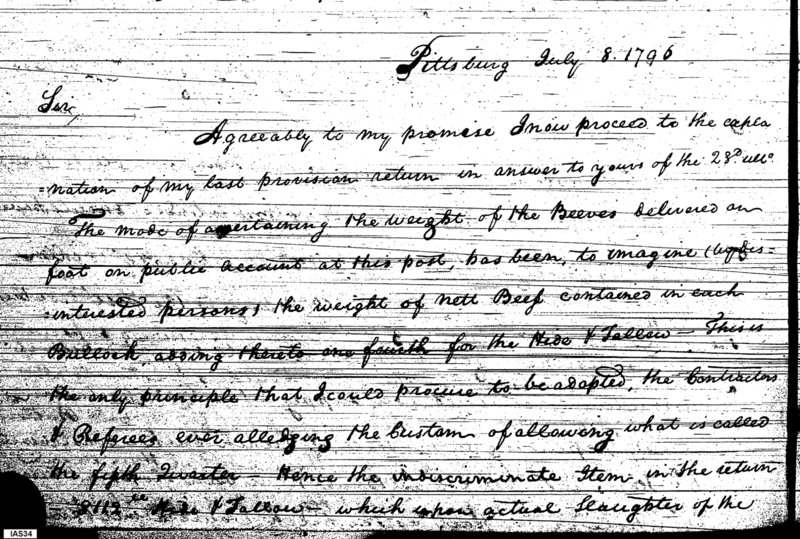 Pittsburg July 8. 1796
Sir,
Agreeably to my promise I now proceed to the expla
=nation of my last provision return in answer to yours of the 23d ulto
The mode of ascertaining the weight of the Beeves delivered on
foot on public account at this post, has been, to imagine (by dis=
=interested persons) the weight of nett Beef contained in each
Bullock, adding thereto one fourth for the Hide & Tallow — This is
the only principle that I could procure to be adopted, the Contractors
& Referees ever alledging the Custom of allowing what is called
the fifth Quarter — Hence the indiscriminate Item in the return
Hide & Tallow — which upon actual Slaughter of the
IAS34